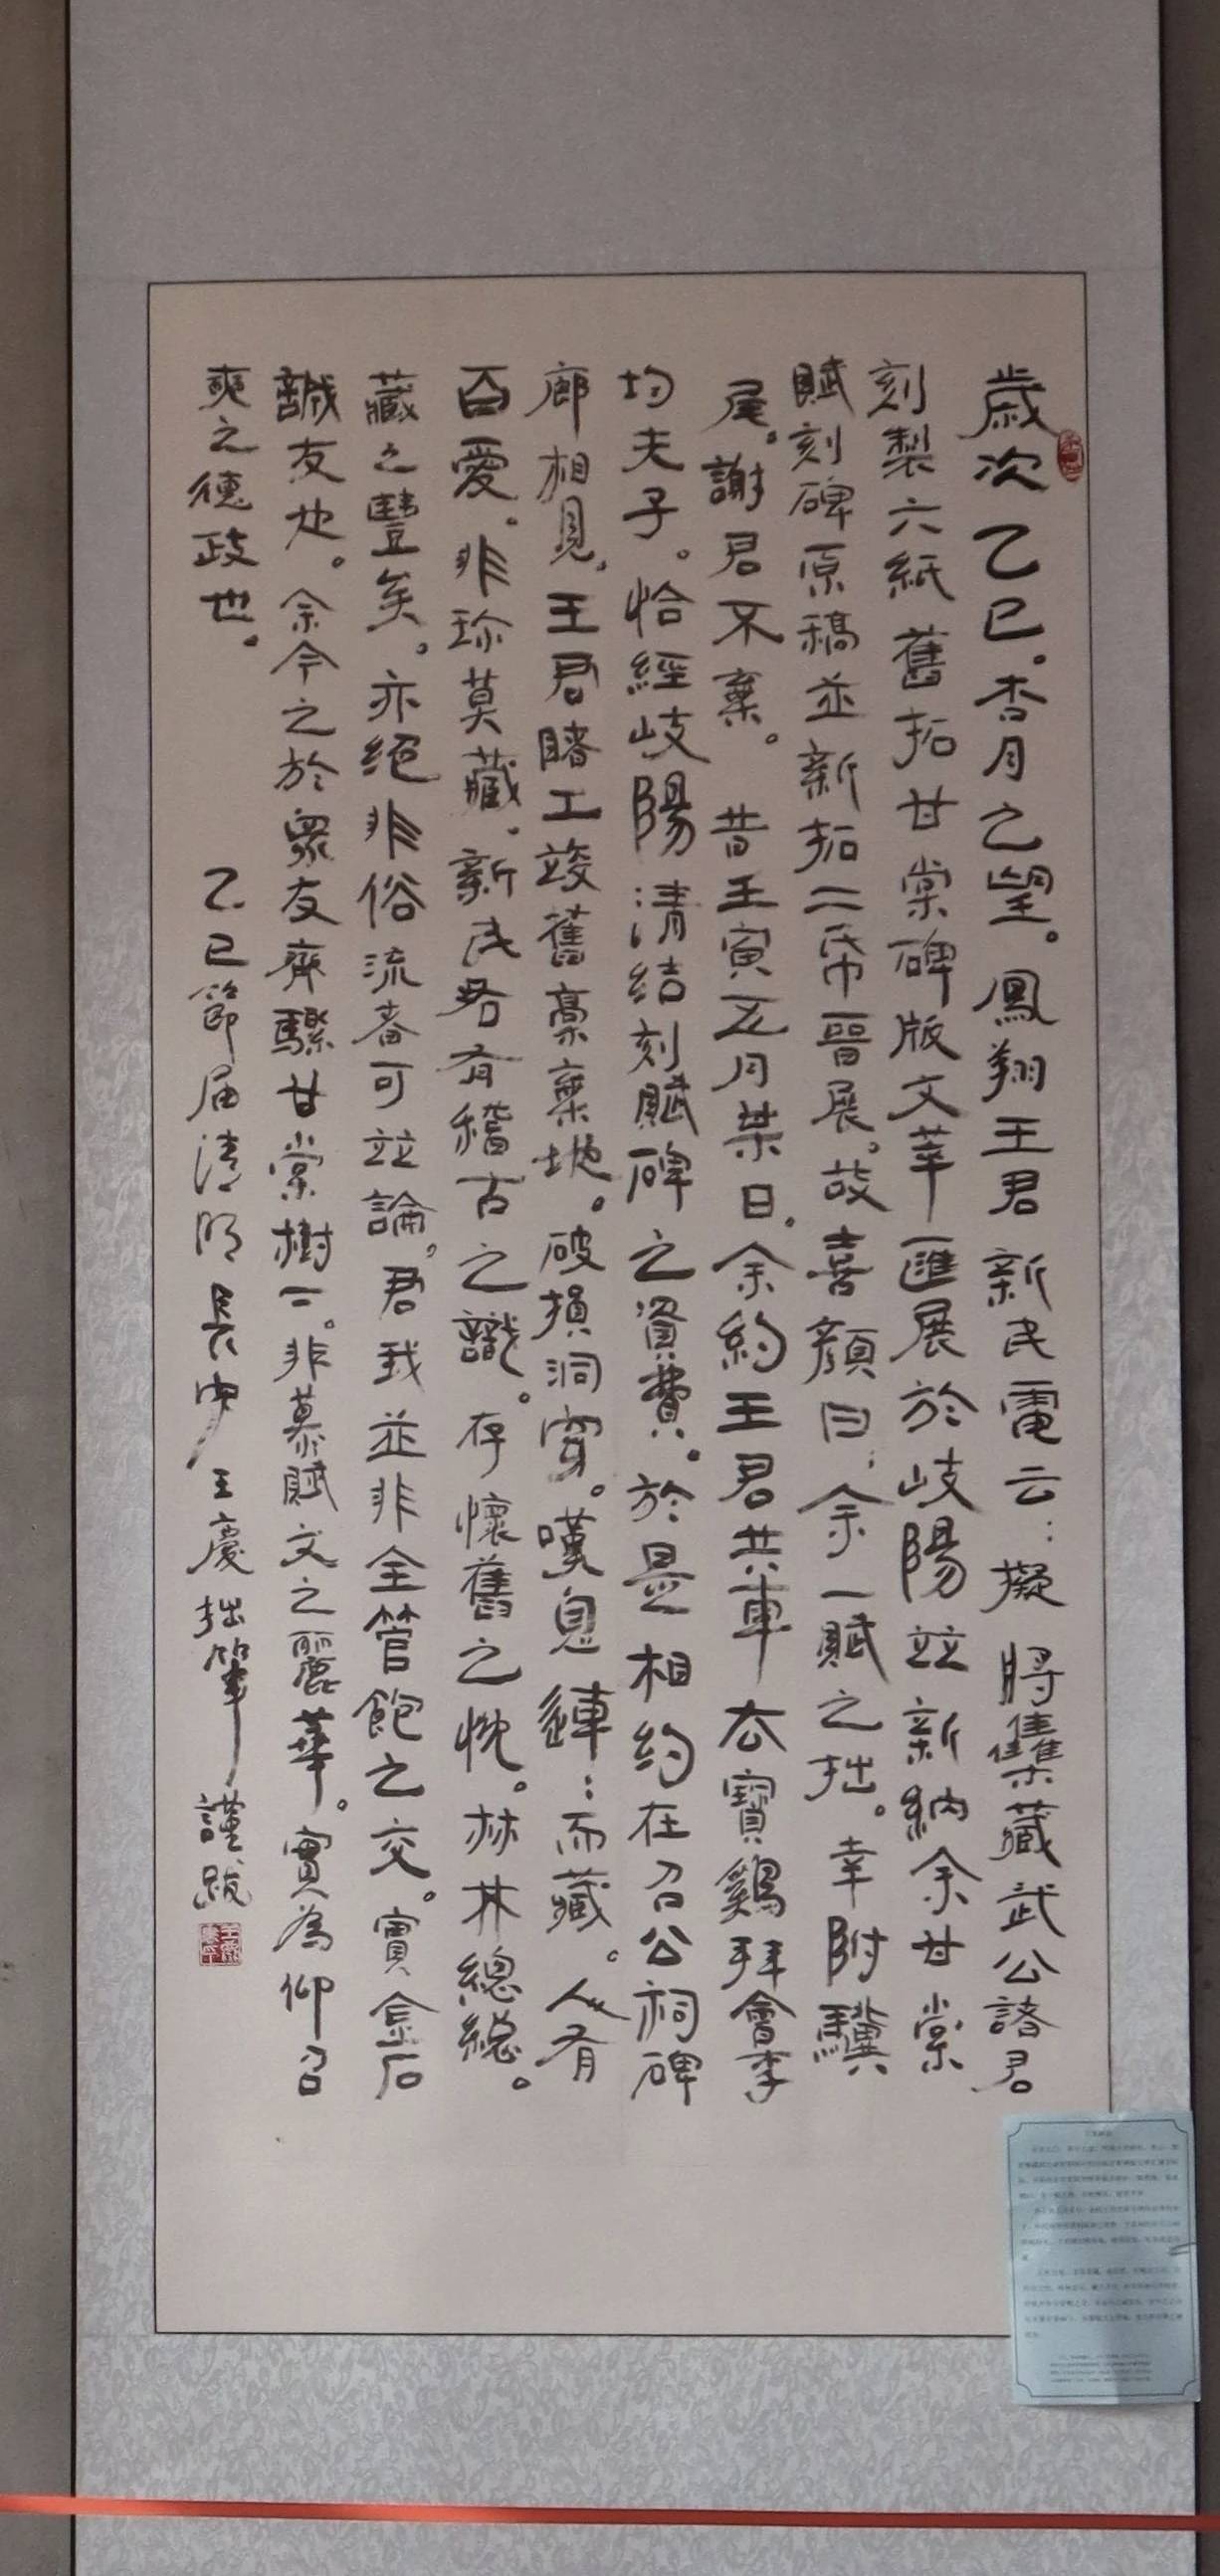 歲次乙巳。杏月之望。鳳翔王君新民電云：擬將集藏武公諸君。
刻製六紙舊拓甘棠碑版文萃匯展於岐陽竝新納余甘棠
賦刻碑原稿並新拓二帋晉展。故喜顏曰：余一賦之拙。幸附驥
尾。謝君不棄。昔壬寅五月某日。余約王君共車去寶鷄拜會李
均夫子。恰經岐陽清結刻賦碑之資費。於是相約在召公祠碑
廊相見，王君睹工竣舊稾棄地。破損洞穿。嘆息連：而藏。人有
百愛。非珍莫藏，新民君有稽古之識。存懷舊之忱。林林總總。
藏之豐矣。亦絕非俗流者可竝論，君我並非全管飽之交。實金石
誠友也。余今之於眾友齊驟甘棠樹二。非慕賦文之麗華。實為仰召
奭之德政世。
乙巳節届清明長安王慶拙筆謹跋